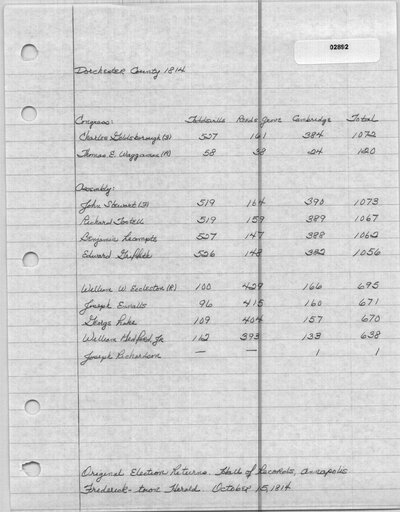 02892
Dorchester County 1814
Congress: Toddsville Reeds Grove Cambridge Total
Charles Goldsborough (3) 527 161 384 1072
Thomas E. Waggaman (R) 58 38 24 120
Assembly:
John Stewart (3) 519 164 390 1073
Richard 519 159 389 1067
Benjamin 527 147 388 1062
Edward Griffith 526 148 382 1056
William W. Eccleston (R) 100 429 166 695
Joseph Ennalls 96 415 160 671
George Lake 109 404 157 670
William Medford, Jr. 112 393 133 638
Joseph Richardson — — 1 1
Original Election Returns. Hall of Records, Annapolis
Frederick-town Herald. October 15, 1814